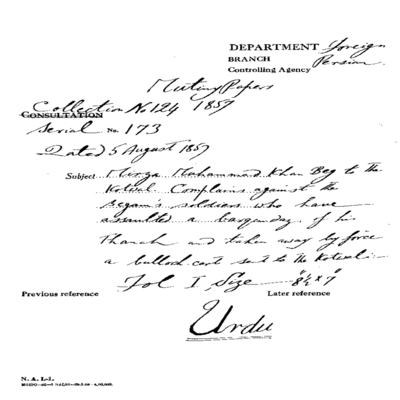 DEPARTMENT Foreign
BRANCH Persian
Controlling Agency
Mutiny Papers
Collection No 124 1857
CONSULTATION
Serial No. 173
Dated 5 August 1857
Subject Mirza Mahammad Khan Beg to the
Kotwal. Complains against the
Begam's soldiers who have
assaulted a barqandaz of his
Thanah and taken away by force
a bullock cart sent to the Kotwal.
Fol I, Size 8½" x 7"
Previous reference Later reference
Urdu
N. A. I.-1.